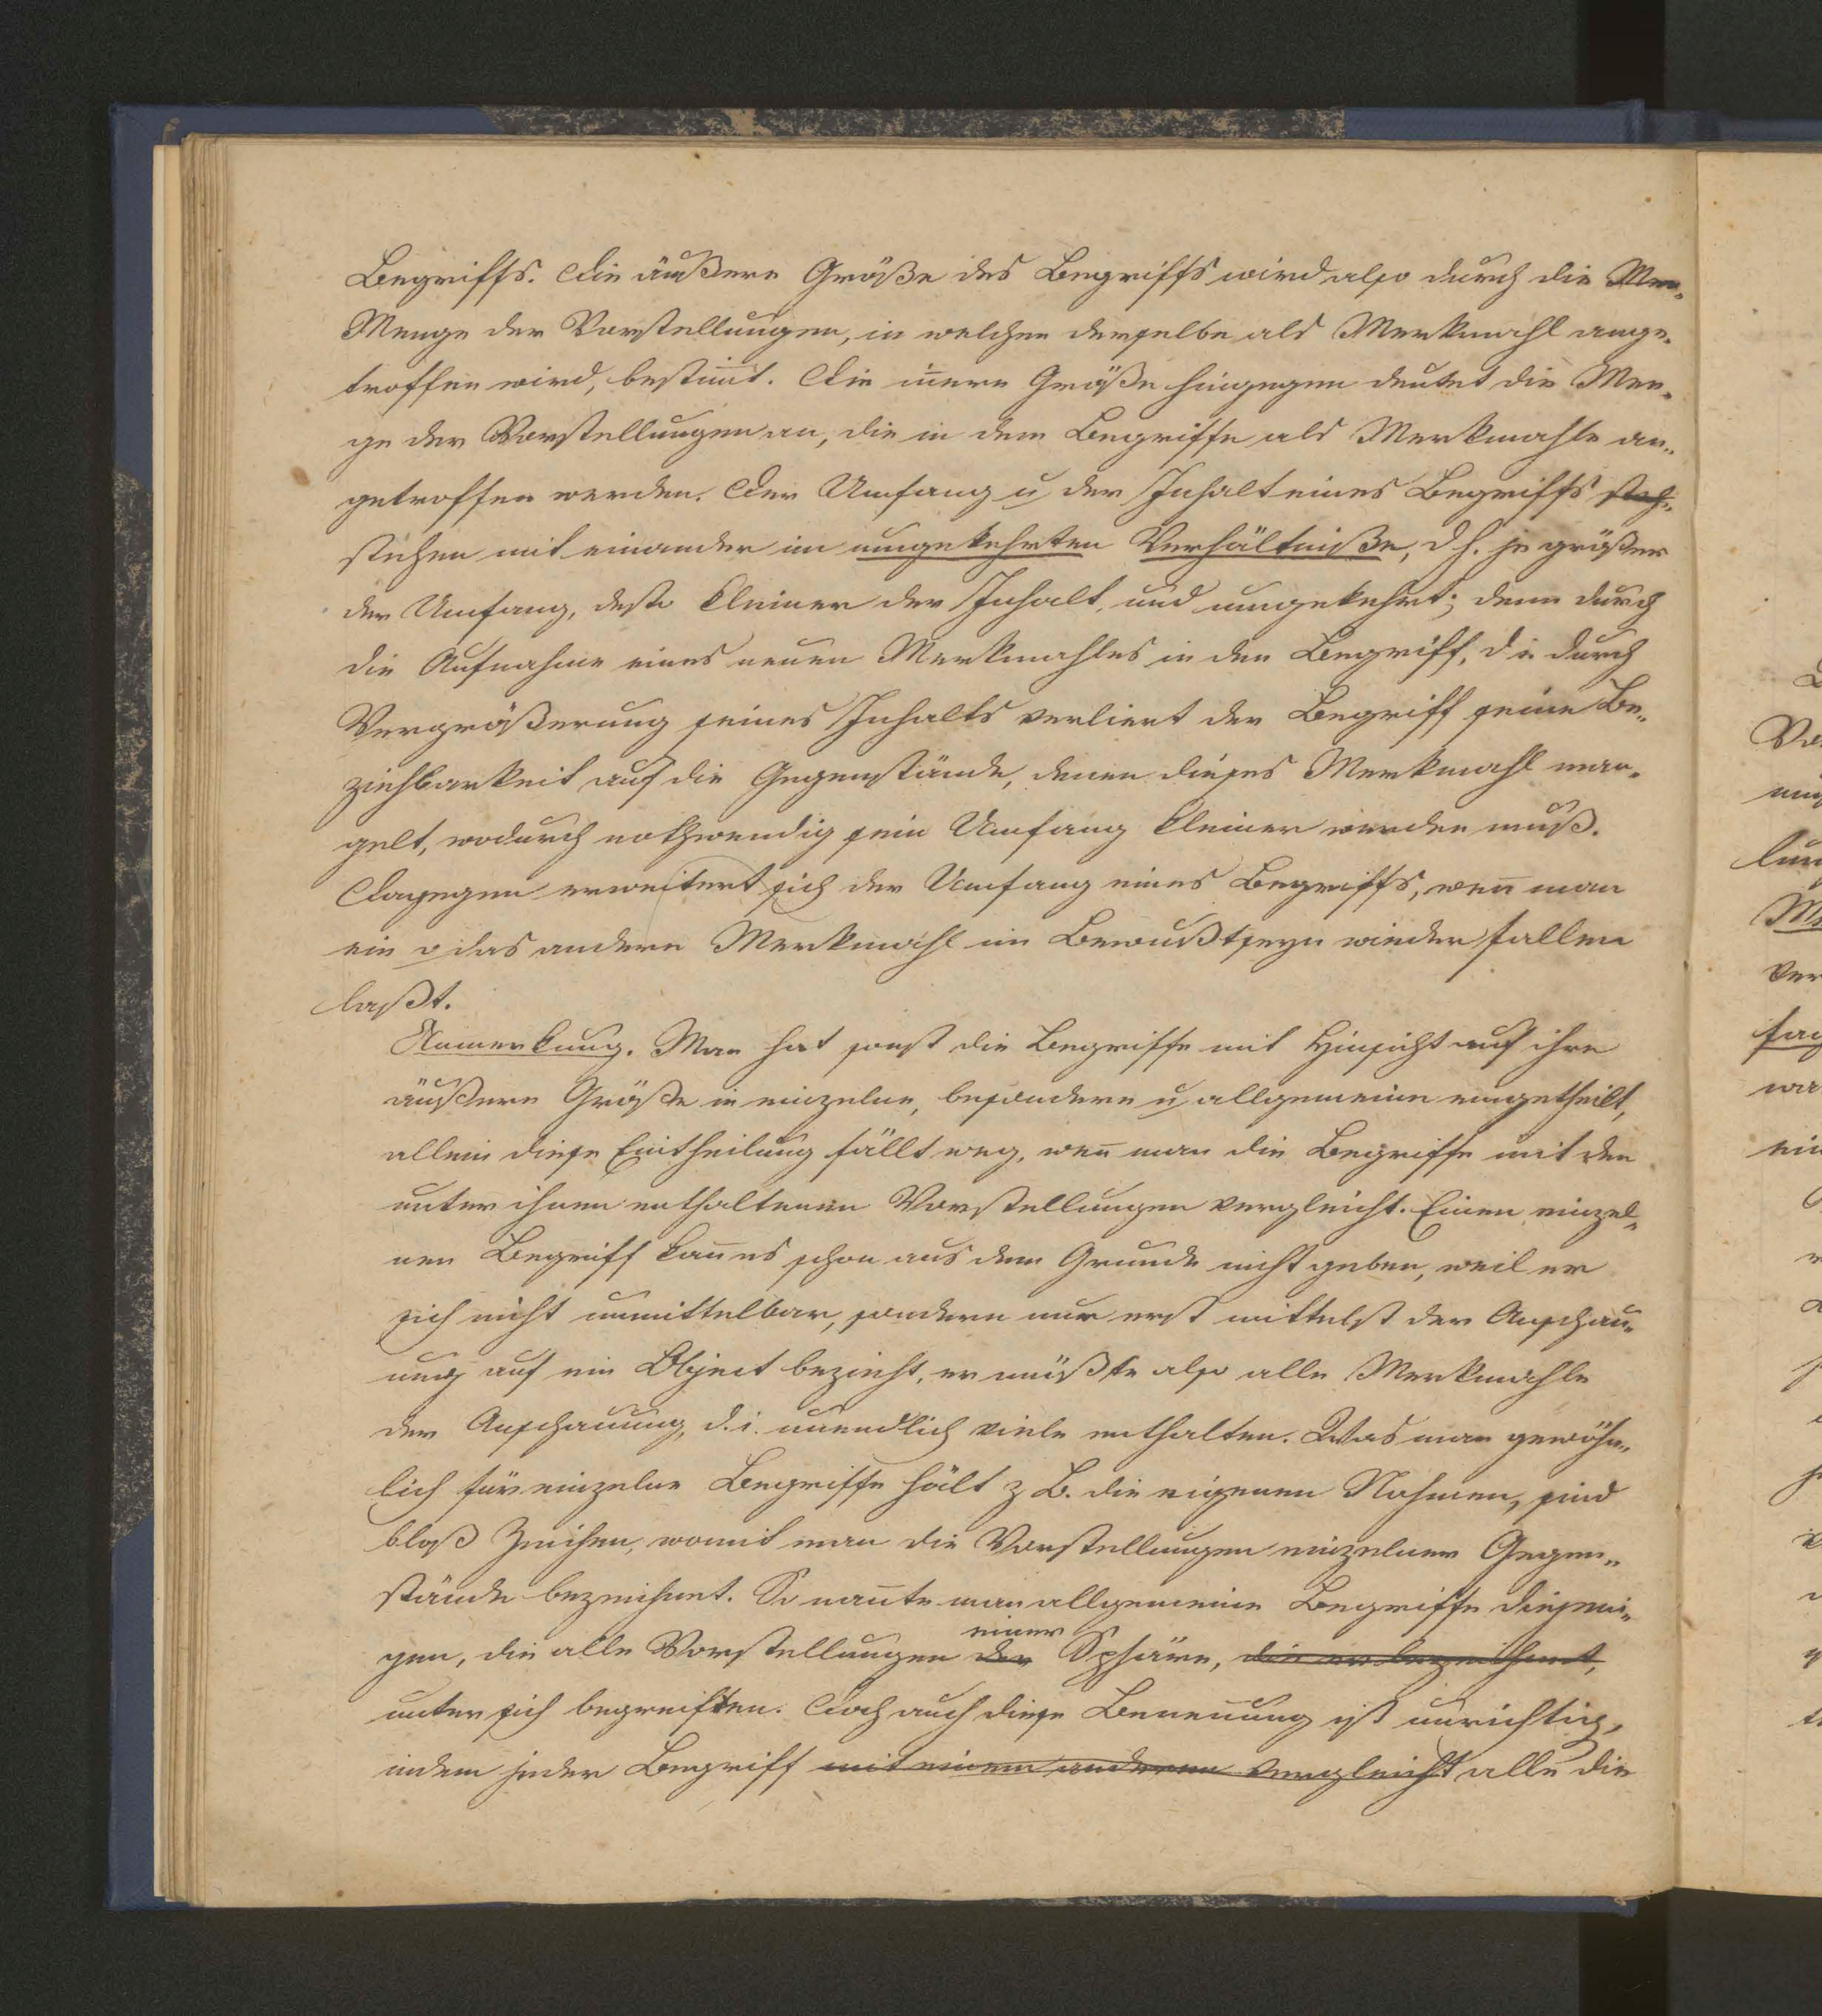 Begriffs. Die äußere Größe des Begriffs wird also durch die Men-
Menge der Vorstellungen, in welchen derselbe als Merkmahl ange-
troffen wird, bestim̅t. Die in̅ere Größe hingegen deutet die Men-
ge der Vorstellungen an, die in dem Begriffe als Merkmahle an-
getroffen werden. Der Umfang u der Inhalt eines Begriffs steh-
stehen mit einander im umgekehrten Verhältniße, d h. je größer
der Umfang, desto kleiner der Inhalt, und umgekehrt; denn durch
die Aufnahme eines neuen Merkmahles in den Begriff, d i durch
Vergrößerung seines Inhalts verliert der Begriff seine Be-
ziehbarkeit auf die Gegenstände, denen dieses Merkmahl man-
gelt, wodurch nothwendig sein Umfang kleiner werden muß.
Dagegen erweitert sich der Umfang eines Begriffs, wen̅ man
ein o das andere Merkmahl im Bewußtseyn wieder fallen
laßt.
Anmerkung. Man hat sonst die Begriffe mit Hinsicht auf ihre
äußere Größe in einzelne, besondere u allgemeine eingetheilt,
allein diese Eintheilung fällt weg, wen̅ man die Begriffe mit den
unter ihnen enthaltenen Vorstellungen vergleicht. Einen einzel-
nen Begriff kan̅ es schon aus dem Grunde nicht geben, weil er
sich nicht unmittelbar, sondern nur erst mittelst der Anschau-
ung auf ein Object bezieht, er müßte also alle Merkmahle
der Anschauung, d. i. unendlich viele enthalten. Was man gewöhn-
lich für einzelne Begriffe hält z B. die eigenen Nahmen, sind
bloß Zeichen, womit man die Vorstellungen einzelner Gegen-
stände bezeichnet. So nan̅te man allgemeine Begriffe diejeni-
einer
gen, die alle Vorstellungen der Sphäre, die er bezeichnet,
unter sich begreiffen. Doch auch diese Benen̅ung ist unrichtig,
indem jeder Begriff mit einem anderen vergleicht alle die